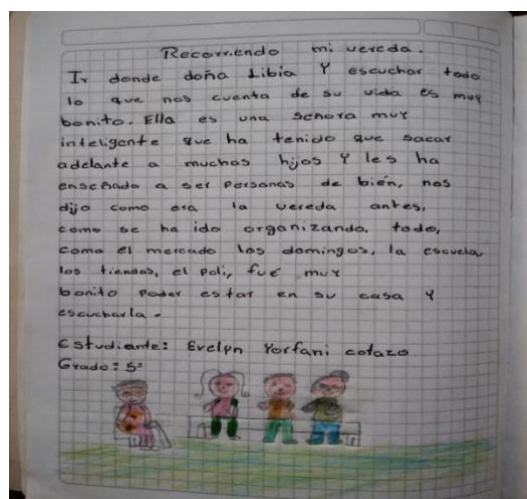 Recorriendo mi vereda.
Ir donde doña Libia Y escuchar todo
lo que nos cuenta de su vida es muy
bonito. Ella es una señora muy
inteligente que ha tenido que sacar
adelante a muchos hijos Y les ha
enseñado a ser personas de bién, nos
dijo como era la vereda antes,
como se ha ido organizando, todo,
como el mercado los domingos, la escuela
los tiendas, el poli, fué muy
bonito poder estar en su casa Y
escucharla.
Estudiante: Evelyn Yorfani cotazo
Grado: 5º